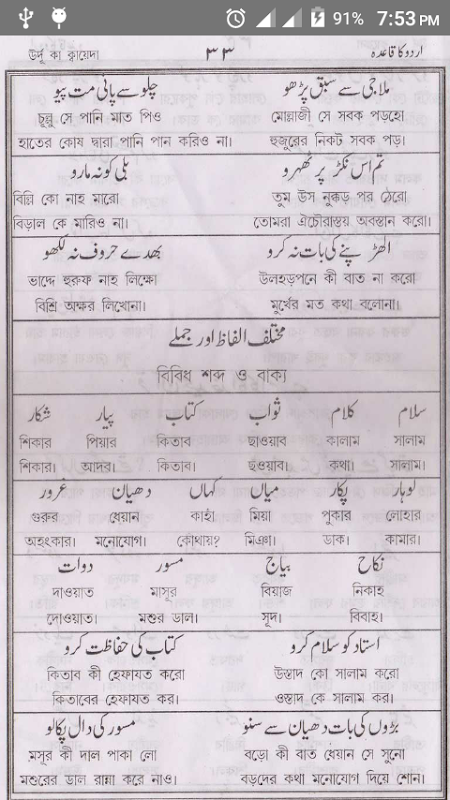 91% 7:53 PM
উর্দু কা ক্বায়েদা
٣٣
اردو کا قاعدہ
ملا جی سے سبق پڑھو
মোল্লাজী সে সবক পড়হো
হুজুরের নিকট সবক পড়।
چلو سے پانی مت پیو
চুল্লু সে পানি মাত পিও
হাতের কোষ দ্বারা পানি পান করিও না।
تم اس نکڑ پر ٹھرو
তুম উস নুক্কড় পর ঠেরো
তোমরা ঐচৌরাস্তায় অবস্তান করো।
بلی کو نہ مارو
বিল্লি কো নাহ মারো
বিড়াল কে মারিও না।
الھڑپنے کی بات نہ کرو
উলহড়পনে কী বাত না করো
মুর্খের মত কথা বলোনা।
بھدے حروف نہ لکھو
ভাদ্দে হুরুফ নাহ লিক্ষো
বিশ্রি অক্ষর লিখোনা।
مختلف الفاظ اور جملے
বিবিধ শব্দ ও বাক্য
سلام کلام ثواب کتاب پیار شکار
শিকার পিয়ার কিতাব ছাওয়াব কালাম সালাম
শিকার। আদর। কিতাব। ছওয়াব। কথা। সালাম।
لوہار پکار میاں کہاں دھیان غرور
গুরুর ধেয়ান কাহাঁ মিয়া পুকার লোহার
অহংকার। মনোযোগ। কোথায়? মিঞা। ডাক। কামার।
نکاح بیاج مسور دوات
দাওয়াত মাসূর বিয়াজ নিকাহ
দোওয়াত। মশুর ডাল। সূদ। বিবাহ।
استاد کو سلام کرو
উস্তাদ কো সালাম করো
ওস্তাদ কে সালাম কর।
کتاب کی حفاظت کرو
কিতাব কী হেফাযত করো
কিতাবের হেফাযত কর।
بڑوں کی بات دھیان سے سنو
বড়ো কী বাত ধেয়ান সে সুনো
বড়দের কথা মনোযোগ দিয়ে শোন।
مسور کی دال پکالو
মসূর কী দাল পাকা লো
মশুরের ডাল রান্না করে নাও।